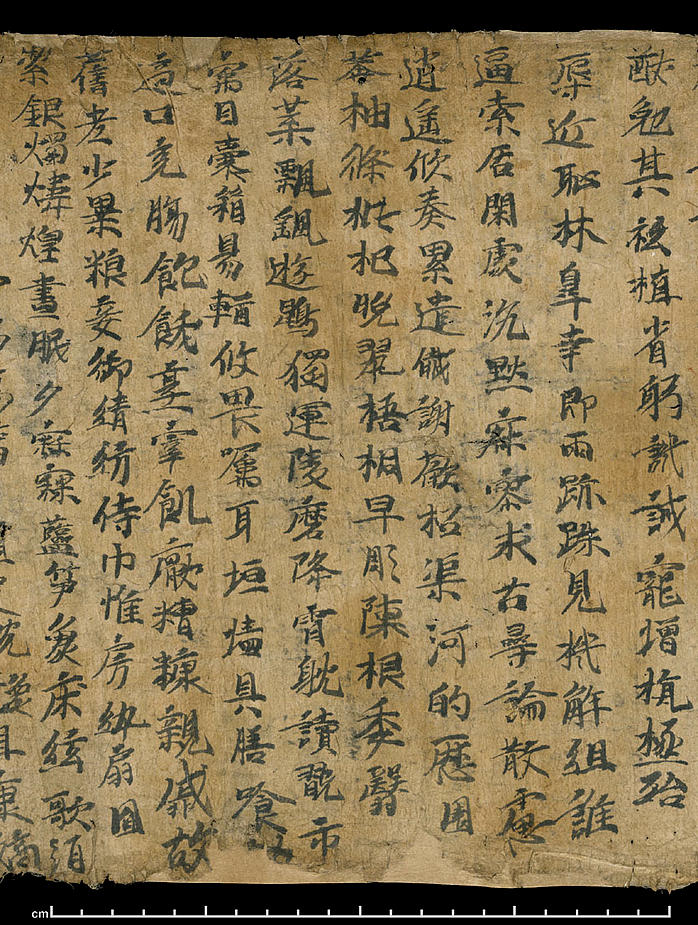 猷勉其祗植省躬譏誡寵增杭極殆
辱近恥林皐幸即兩跡踈見機解組誰
逼索居閑處沉默寂寥求古尋論散慮
逍遙欣奏累遣慼謝歡招渠河的歷園
莽柚條枇杷晚翠梧桐早彫陳根委翳
落葉飄颻遊鵾獨運陵磨降霄耽讀翫市
寓目囊箱易輶攸畏囑耳垣墻具膳喰
適口充腸飽飫享宰飢厭糟糠親戚故
舊老少異粮妾御績紡侍巾帷房紈扇圓
絜銀燭煒煌晝眠夕寐寐藍笋象床絃歌酒
足悅豫且康嫡